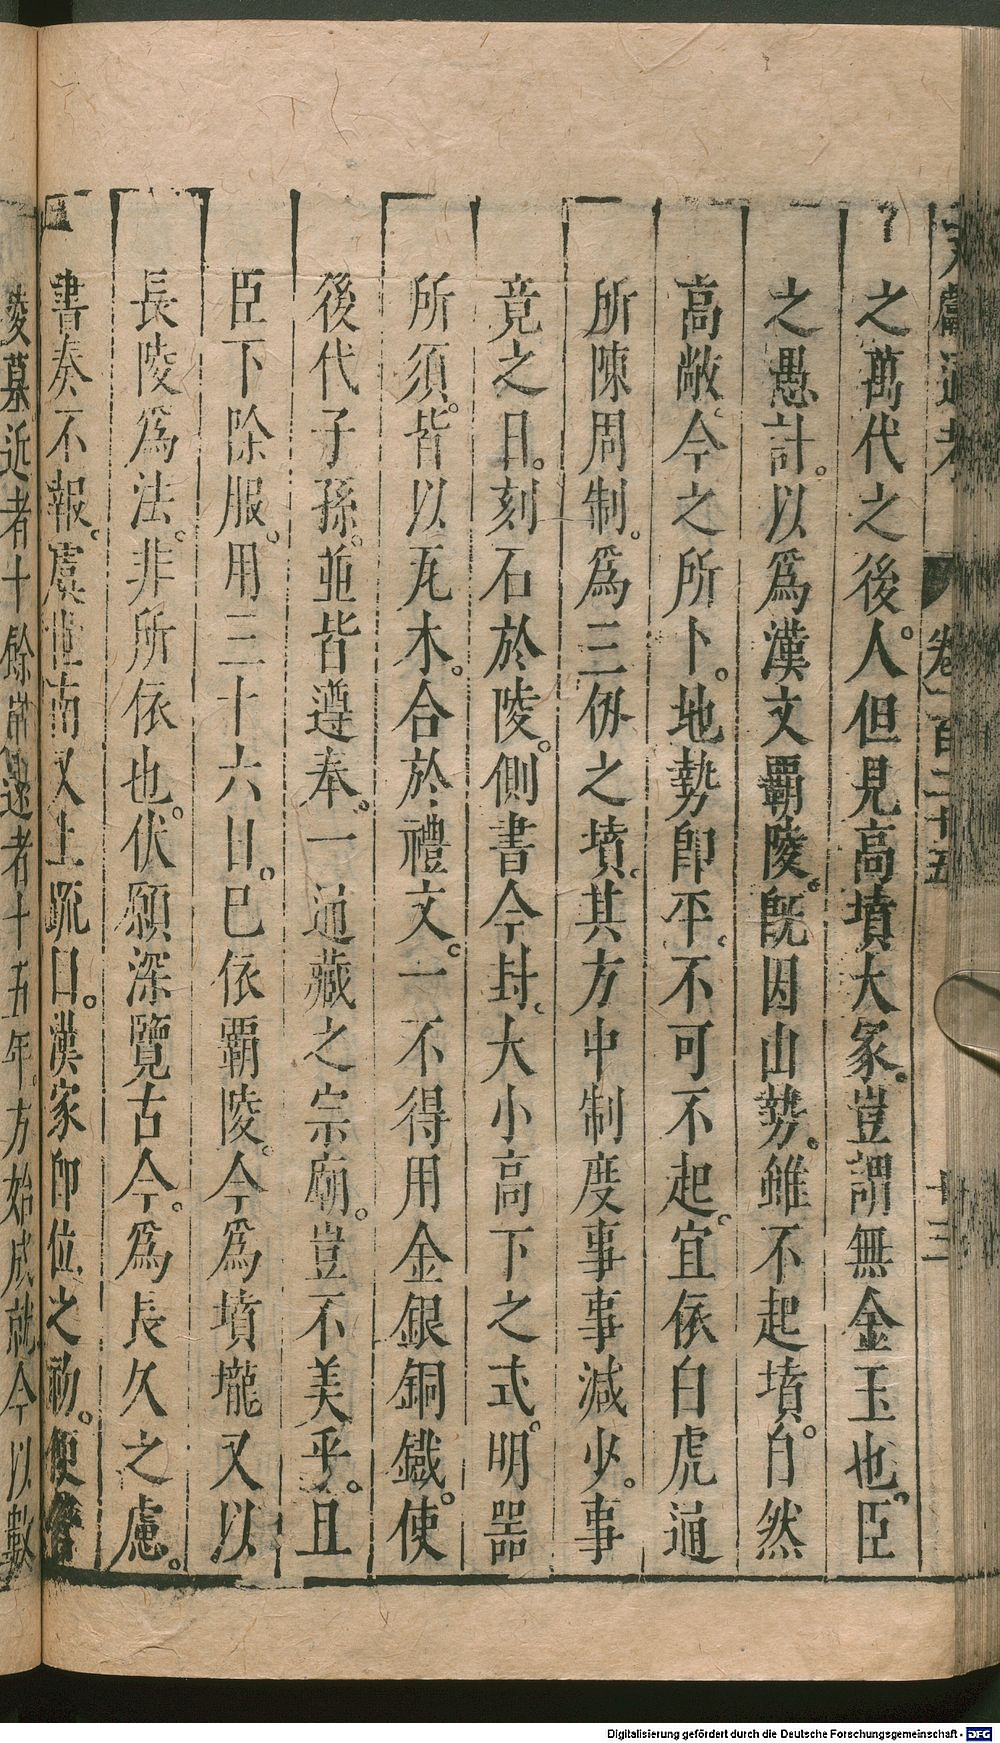 文獻通考 卷一百二十五 十三
之萬代之後。人但見高墳大冢。豈謂無金玉也。臣
之愚計。以爲漢文覇陵。旣因山勢。雖不起墳。自然
高敞。今之所卜。地勢卽平。不可不起。宜依白虎通
所陳周制。爲三仞之墳。其方中制度事事減少。事
竟之日。刻石於陵。側書今封。大小高下之式。明器
所須。皆以瓦木。合於禮文。一不得用金銀銅鐵。使
後代子孫。並皆遵奉。一通藏之宗廟。豈不美乎。且
臣下除服。用三十六日。已依覇陵。今爲墳壠又以
長陵爲法。非所依也。伏願深覽古今。爲長久之慮。
書奏不報。虞世南又上疏曰。漢家卽位之初。便營
陵墓近者十餘歲遠者十五年。方始成就今以數
Digitalisierung gefördert durch die Deutsche Forschungsgemeinschaft - DFG